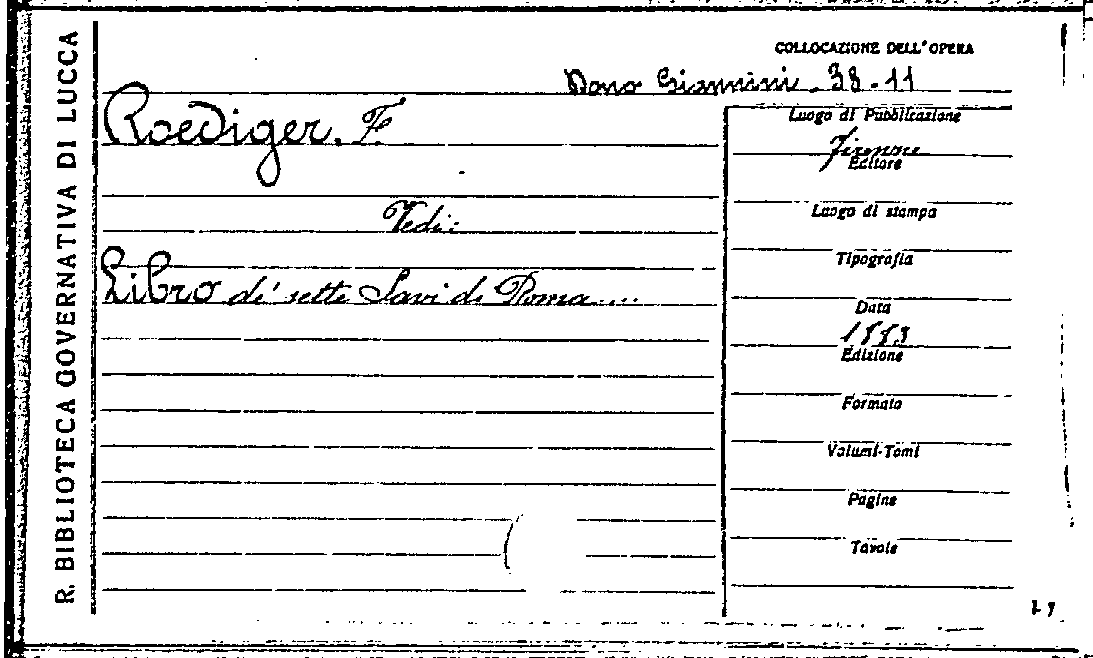 R. BIBLIOTECA GOVERNATIVA DI LUCCA
COLLOCAZIONE DELL'OPERA
Dono Giannini. 38-11
Roediger. F.
Vedi:
Libro de' sette Savi di Roma....
Luogo di Pubblicazione
Firenze
Editore
Luogo di stampa
Tipografia
Data
1883
Edizione
Formato
Volumi-Tomi
Pagine
Tavole